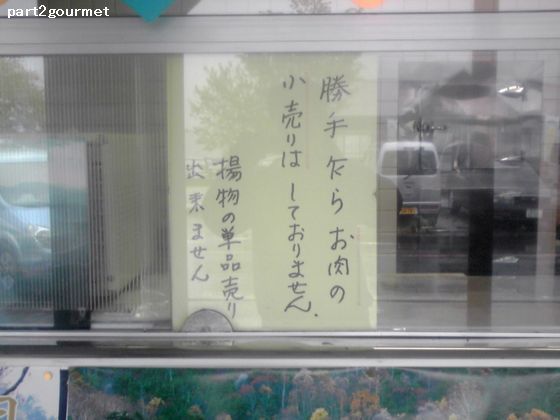 part2gourmet
勝手乍らお肉の
小売りはしておりません.
揚物の単品売り
出来ません